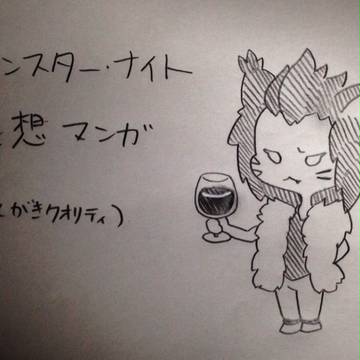 ンスター・ナイト
想 マンガ
がきクオリティ)